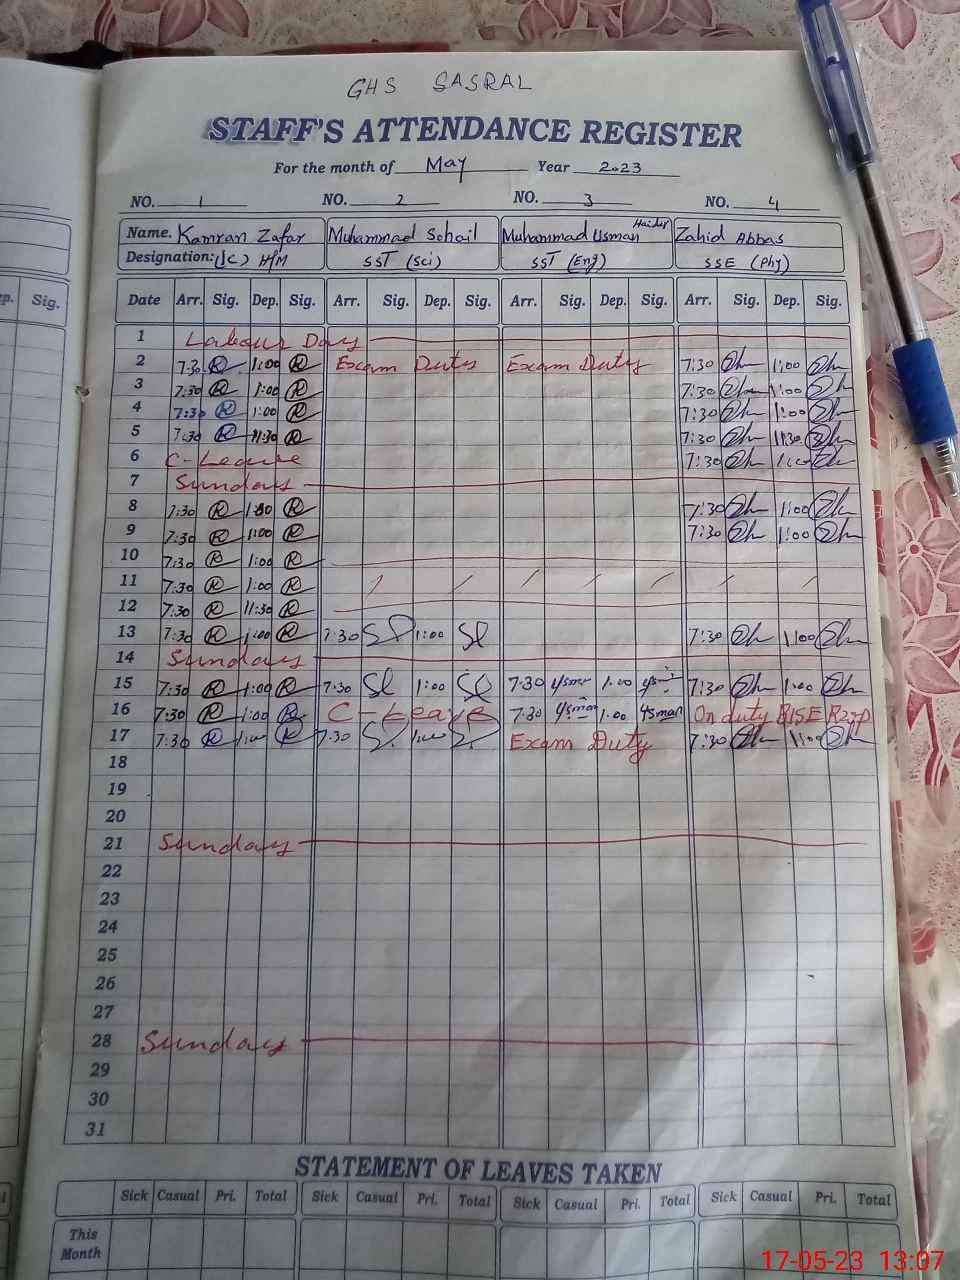 GHS SASRAL
STAFF'S ATTENDANCE REGISTER
For the month of May Year 2023
NO. 1 NO. 2 NO. 3 NO. 4
Name. Kamran Zafar Muhammad Sohail Muhammad Usman Haider Zahid Abbas
Designation: (IC) H/M SST (Sci) SST (Eng) SSE (Phy)
ep. Sig. Date Arr. Sig. Dep. Sig. Arr. Sig. Dep. Sig. Arr. Sig. Dep. Sig. Arr. Sig. Dep. Sig.
1 Labour Day
2 7:30 R 1:00 R Exam Duty Exam Duty 7:30 1:00
3 7:30 R 1:00 R 7:30 1:00
4 7:30 R 1:00 R 7:30 1:00
5 7:30 R 11:30 R 7:30 11:30
6 C-Leave 7:30 1:00
7 Sunday
8 7:30 R 1:00 R 7:30 1:00
9 7:30 R 1:00 R 7:30 1:00
10 7:30 R 1:00 R
11 7:30 R 1:00 R
12 7:30 R 11:30 R
13 7:30 R 1:00 R 7:30 1:00 7:30 1:00
14 Sunday
15 7:30 R 1:00 R 7:30 1:00 7:30 1:00 7:30 1:00
16 7:30 R 1:00 R C-Leave 7:30 Usman 1:00 Usman On duty RISE Rwp
17 7:30 R 1:00 R 7:30 1:00 Exam Duty 7:30 1:00
18
19
20
21 Sunday
22
23
24
25
26
27
28 Sunday
29
30
31
STATEMENT OF LEAVES TAKEN
Sick Casual Pri. Total Sick Casual Pri. Total Sick Casual Pri. Total Sick Casual Pri. Total
This
Month
17-05-23 13:07